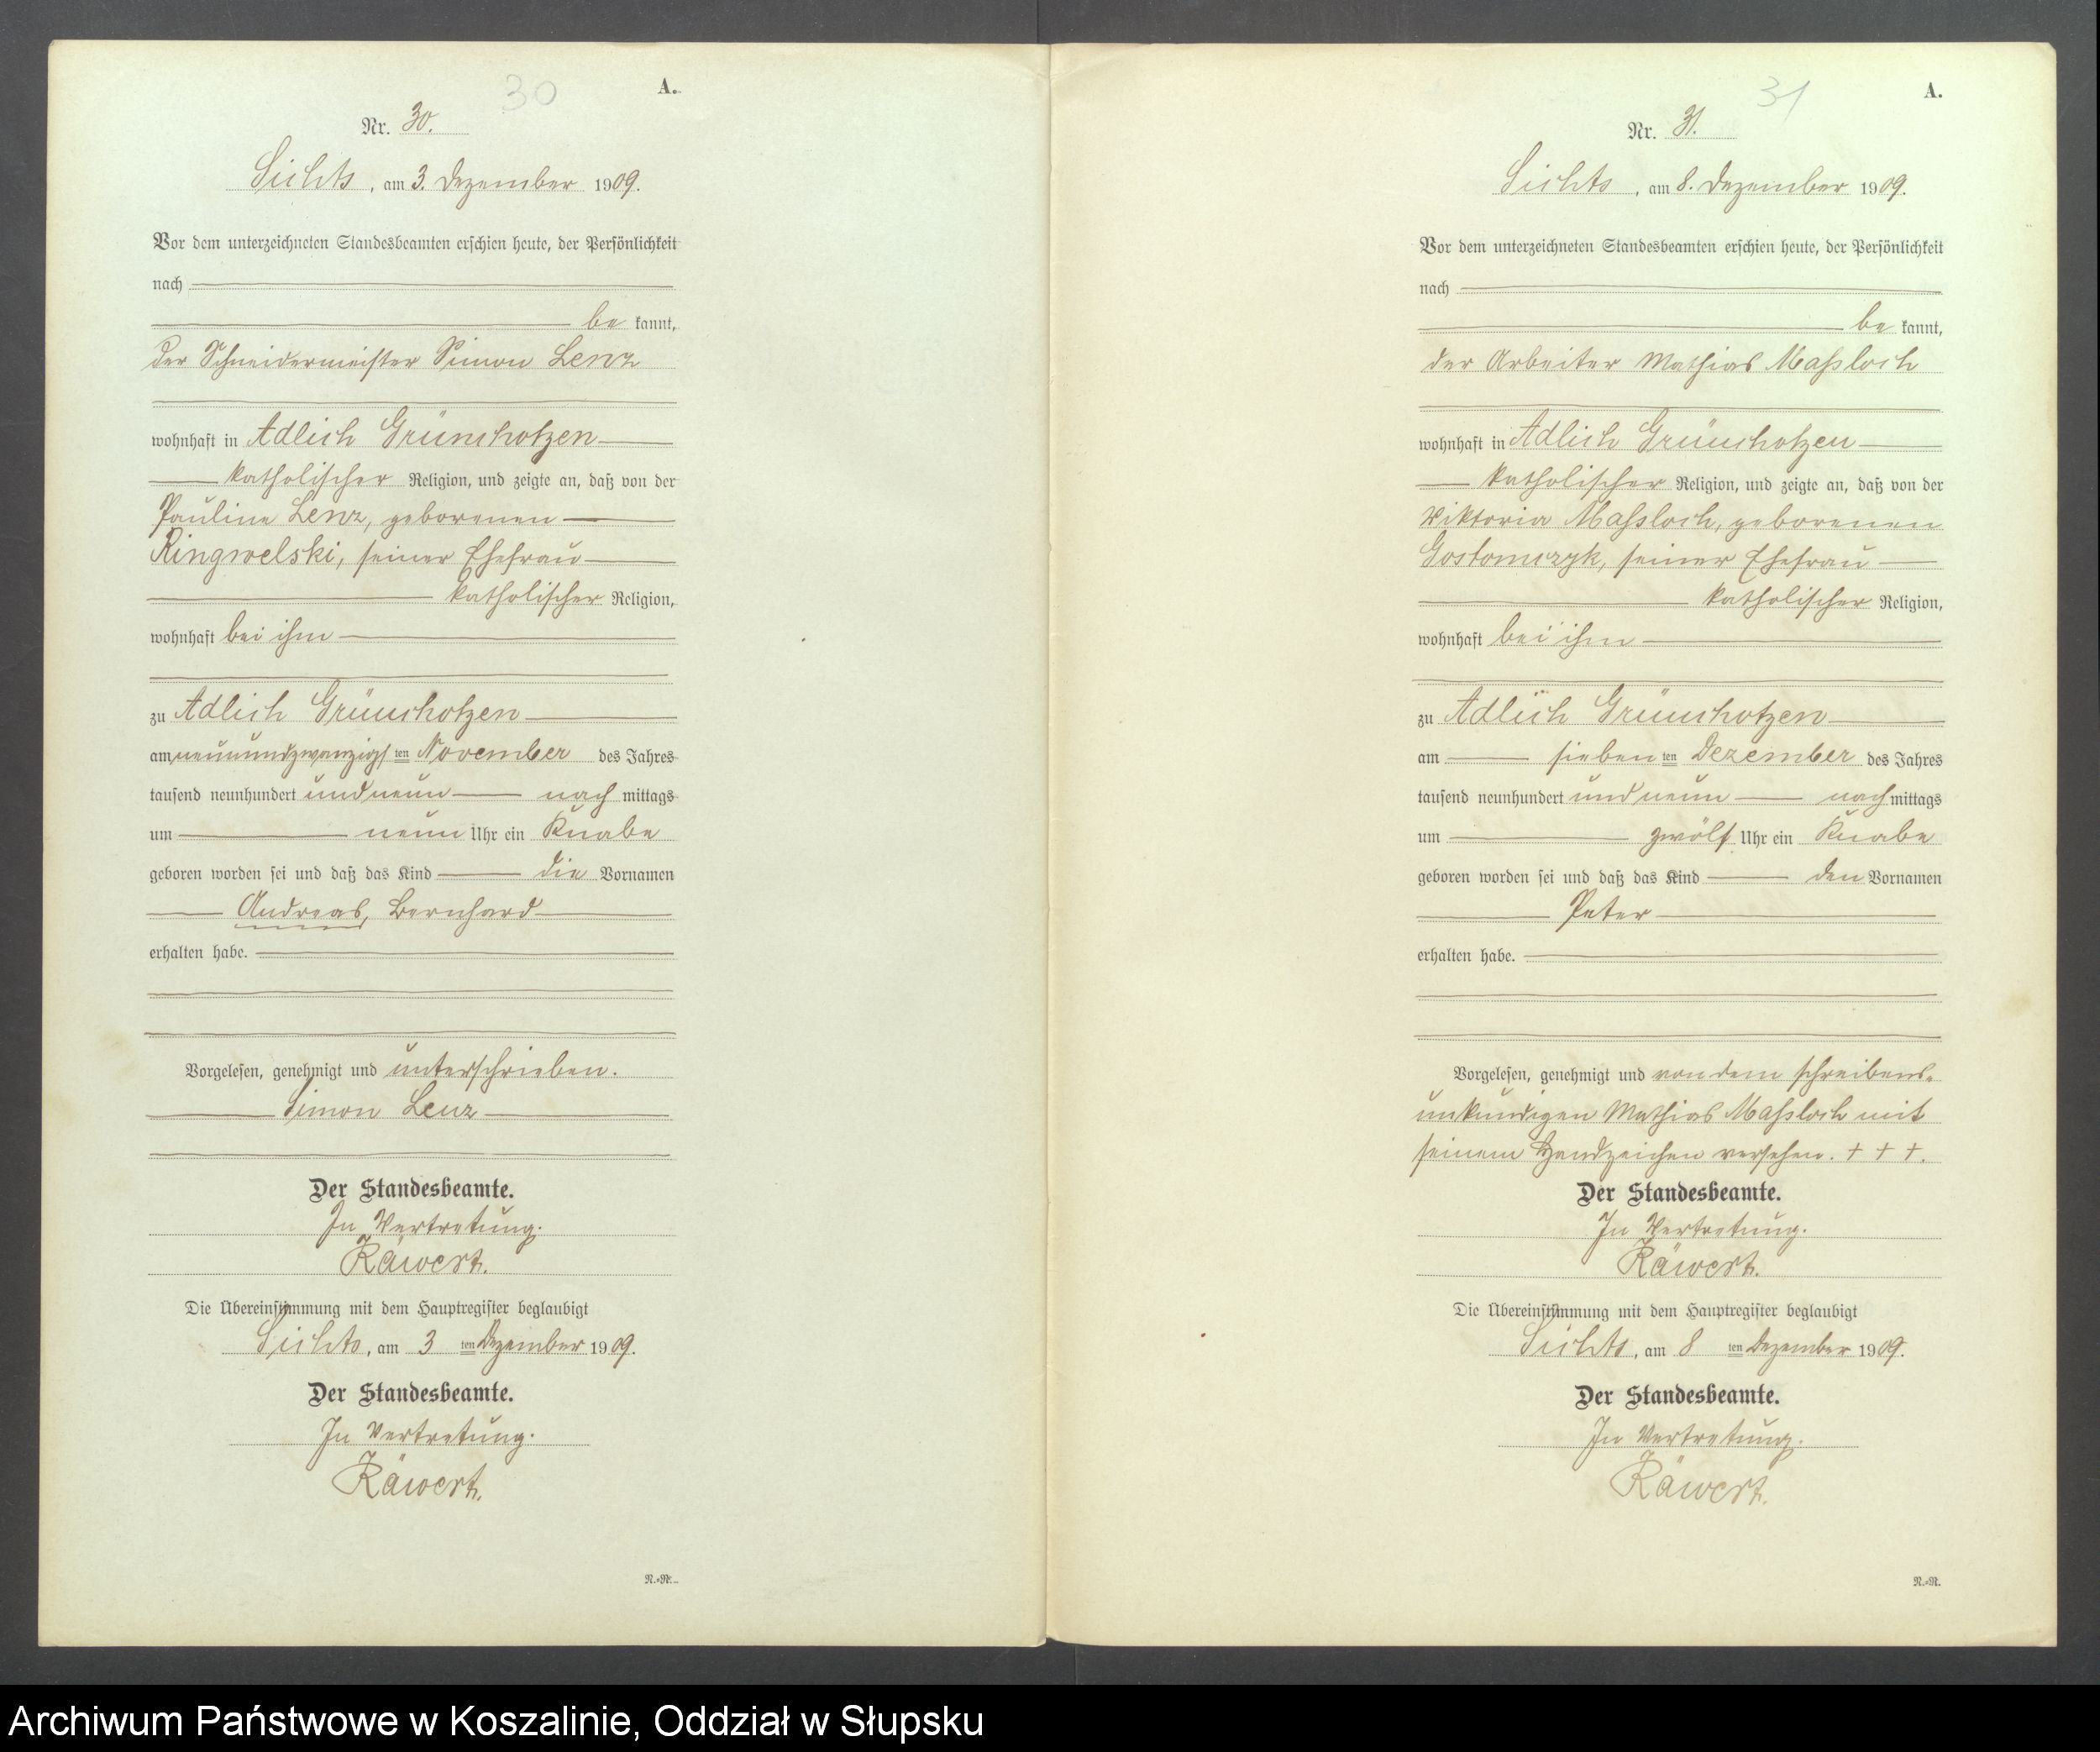 30
A.
Nr. 30.
Sichts, am 3. Dezember 1909.
Vor dem unterzeichneten Standesbeamten erschien heute, der Persönlichkeit
nach
be kannt,
der Schneidermeister Simon Lenz
wohnhaft in Adlich Grünchotzen
katholischer Religion, und zeigte an, daß von der
Pauline Lenz, geborenen
Ringwelski, seiner Ehefrau
katholischer Religion,
wohnhaft bei ihm
zu Adlich Grünchotzen
am neunundzwanzigsten November des Jahres
tausend neunhundert und neun nach mittags
um neun Uhr ein Knabe
geboren worden sei und daß das Kind die Vornamen
Andreas, Bernhard
erhalten habe.
Vorgelesen, genehmigt und unterschrieben.
Simon Lenz
Der Standesbeamte.
In Vertretung.
Räwert.
Die Übereinstimmung mit dem Hauptregister beglaubigt
Sichts, am 3 ten Dezember 1909.
Der Standesbeamte.
In Vertretung.
Räwert.
N.=N.
31
A.
Nr. 31.
Sichts, am 8. Dezember 1909.
Vor dem unterzeichneten Standesbeamten erschien heute, der Persönlichkeit
nach
be kannt,
der Arbeiter Mathias Maßloch
wohnhaft in Adlich Grünchotzen
katholischer Religion, und zeigte an, daß von der
Viktoria Maßloch, geborenen
Gostomczyk, seiner Ehefrau
katholischer Religion,
wohnhaft bei ihm
zu Adlich Grünchotzen
am sieben ten Dezember des Jahres
tausend neunhundert und neun nach mittags
um zwölf Uhr ein Knabe
geboren worden sei und daß das Kind den Vornamen
Peter
erhalten habe.
Vorgelesen, genehmigt und von dem schreibens=
unkundigen Mathias Maßloch mit
seinem Handzeichen versehen. + + +.
Der Standesbeamte.
In Vertretung.
Räwert.
Die Übereinstimmung mit dem Hauptregister beglaubigt
Sichts, am 8 ten Dezember 1909.
Der Standesbeamte.
In Vertretung.
Räwert.
N.=N.
Archiwum Państwowe w Koszalinie, Oddział w Słupsku